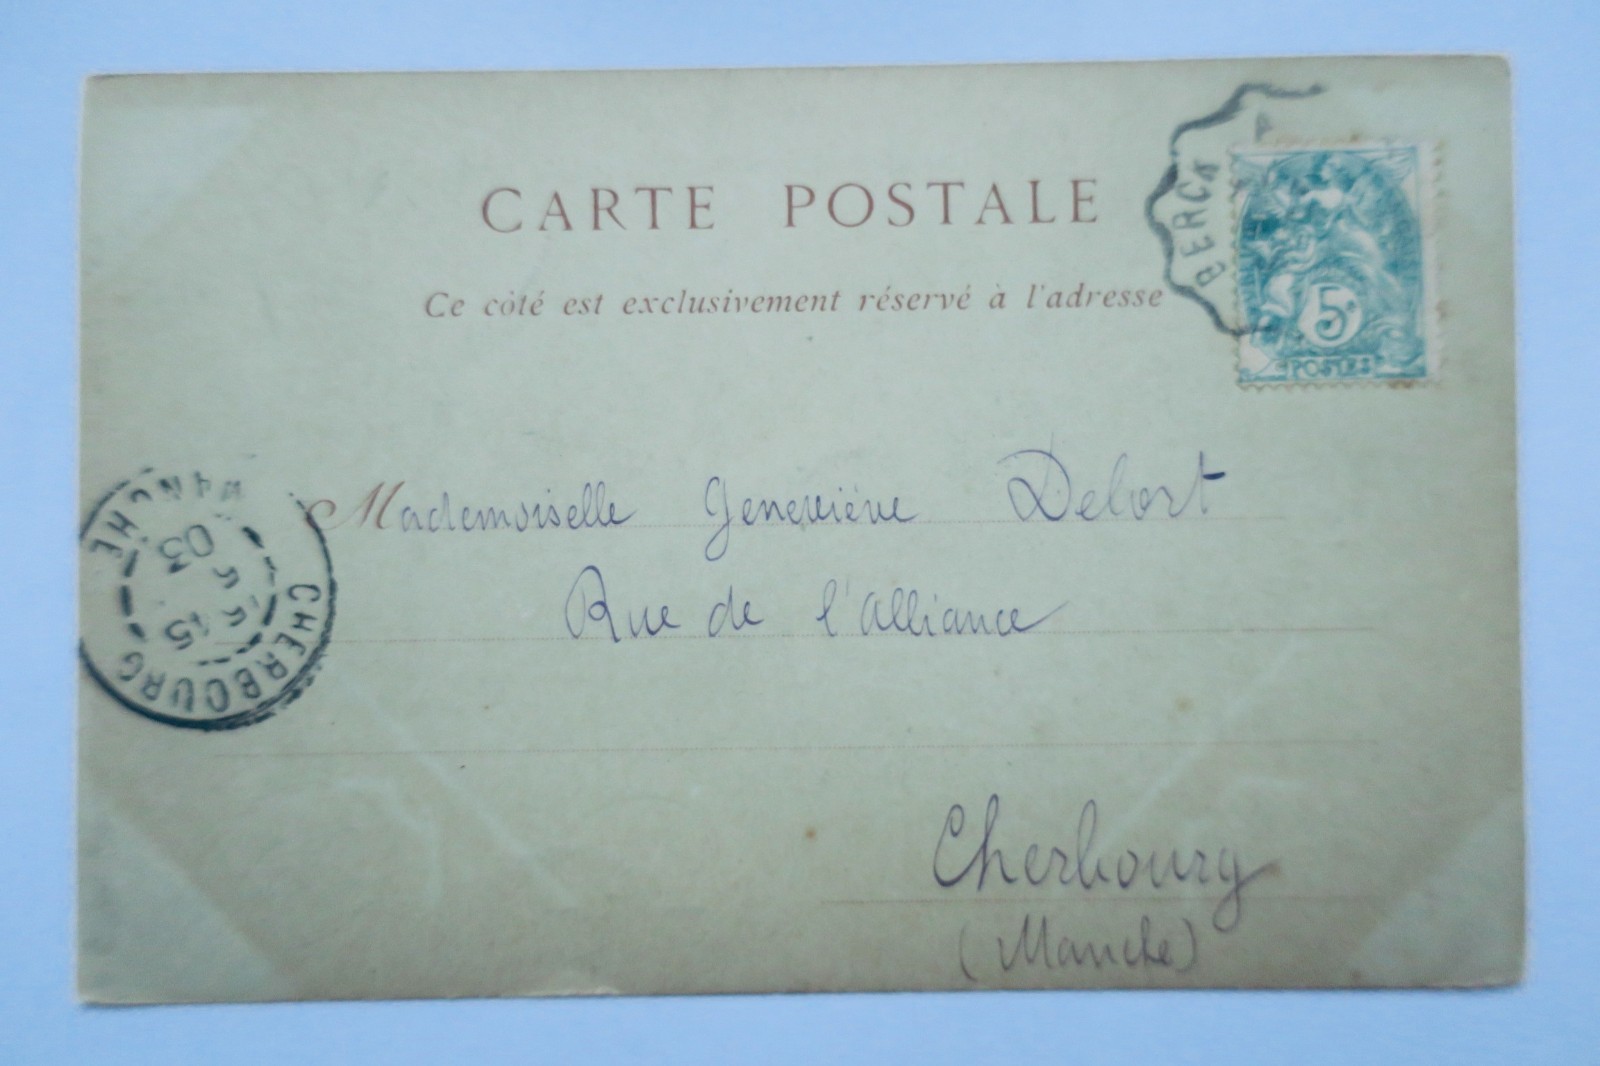 CARTE POSTALE
Ce côté est exclusivement réservé à l'adresse
BERCK
5c
POSTES
Mademoiselle Geneviève Debort
Rue de l'Alliance
Cherbourg
(Manche)
CHERBOURG
MANCHE
15
5
03